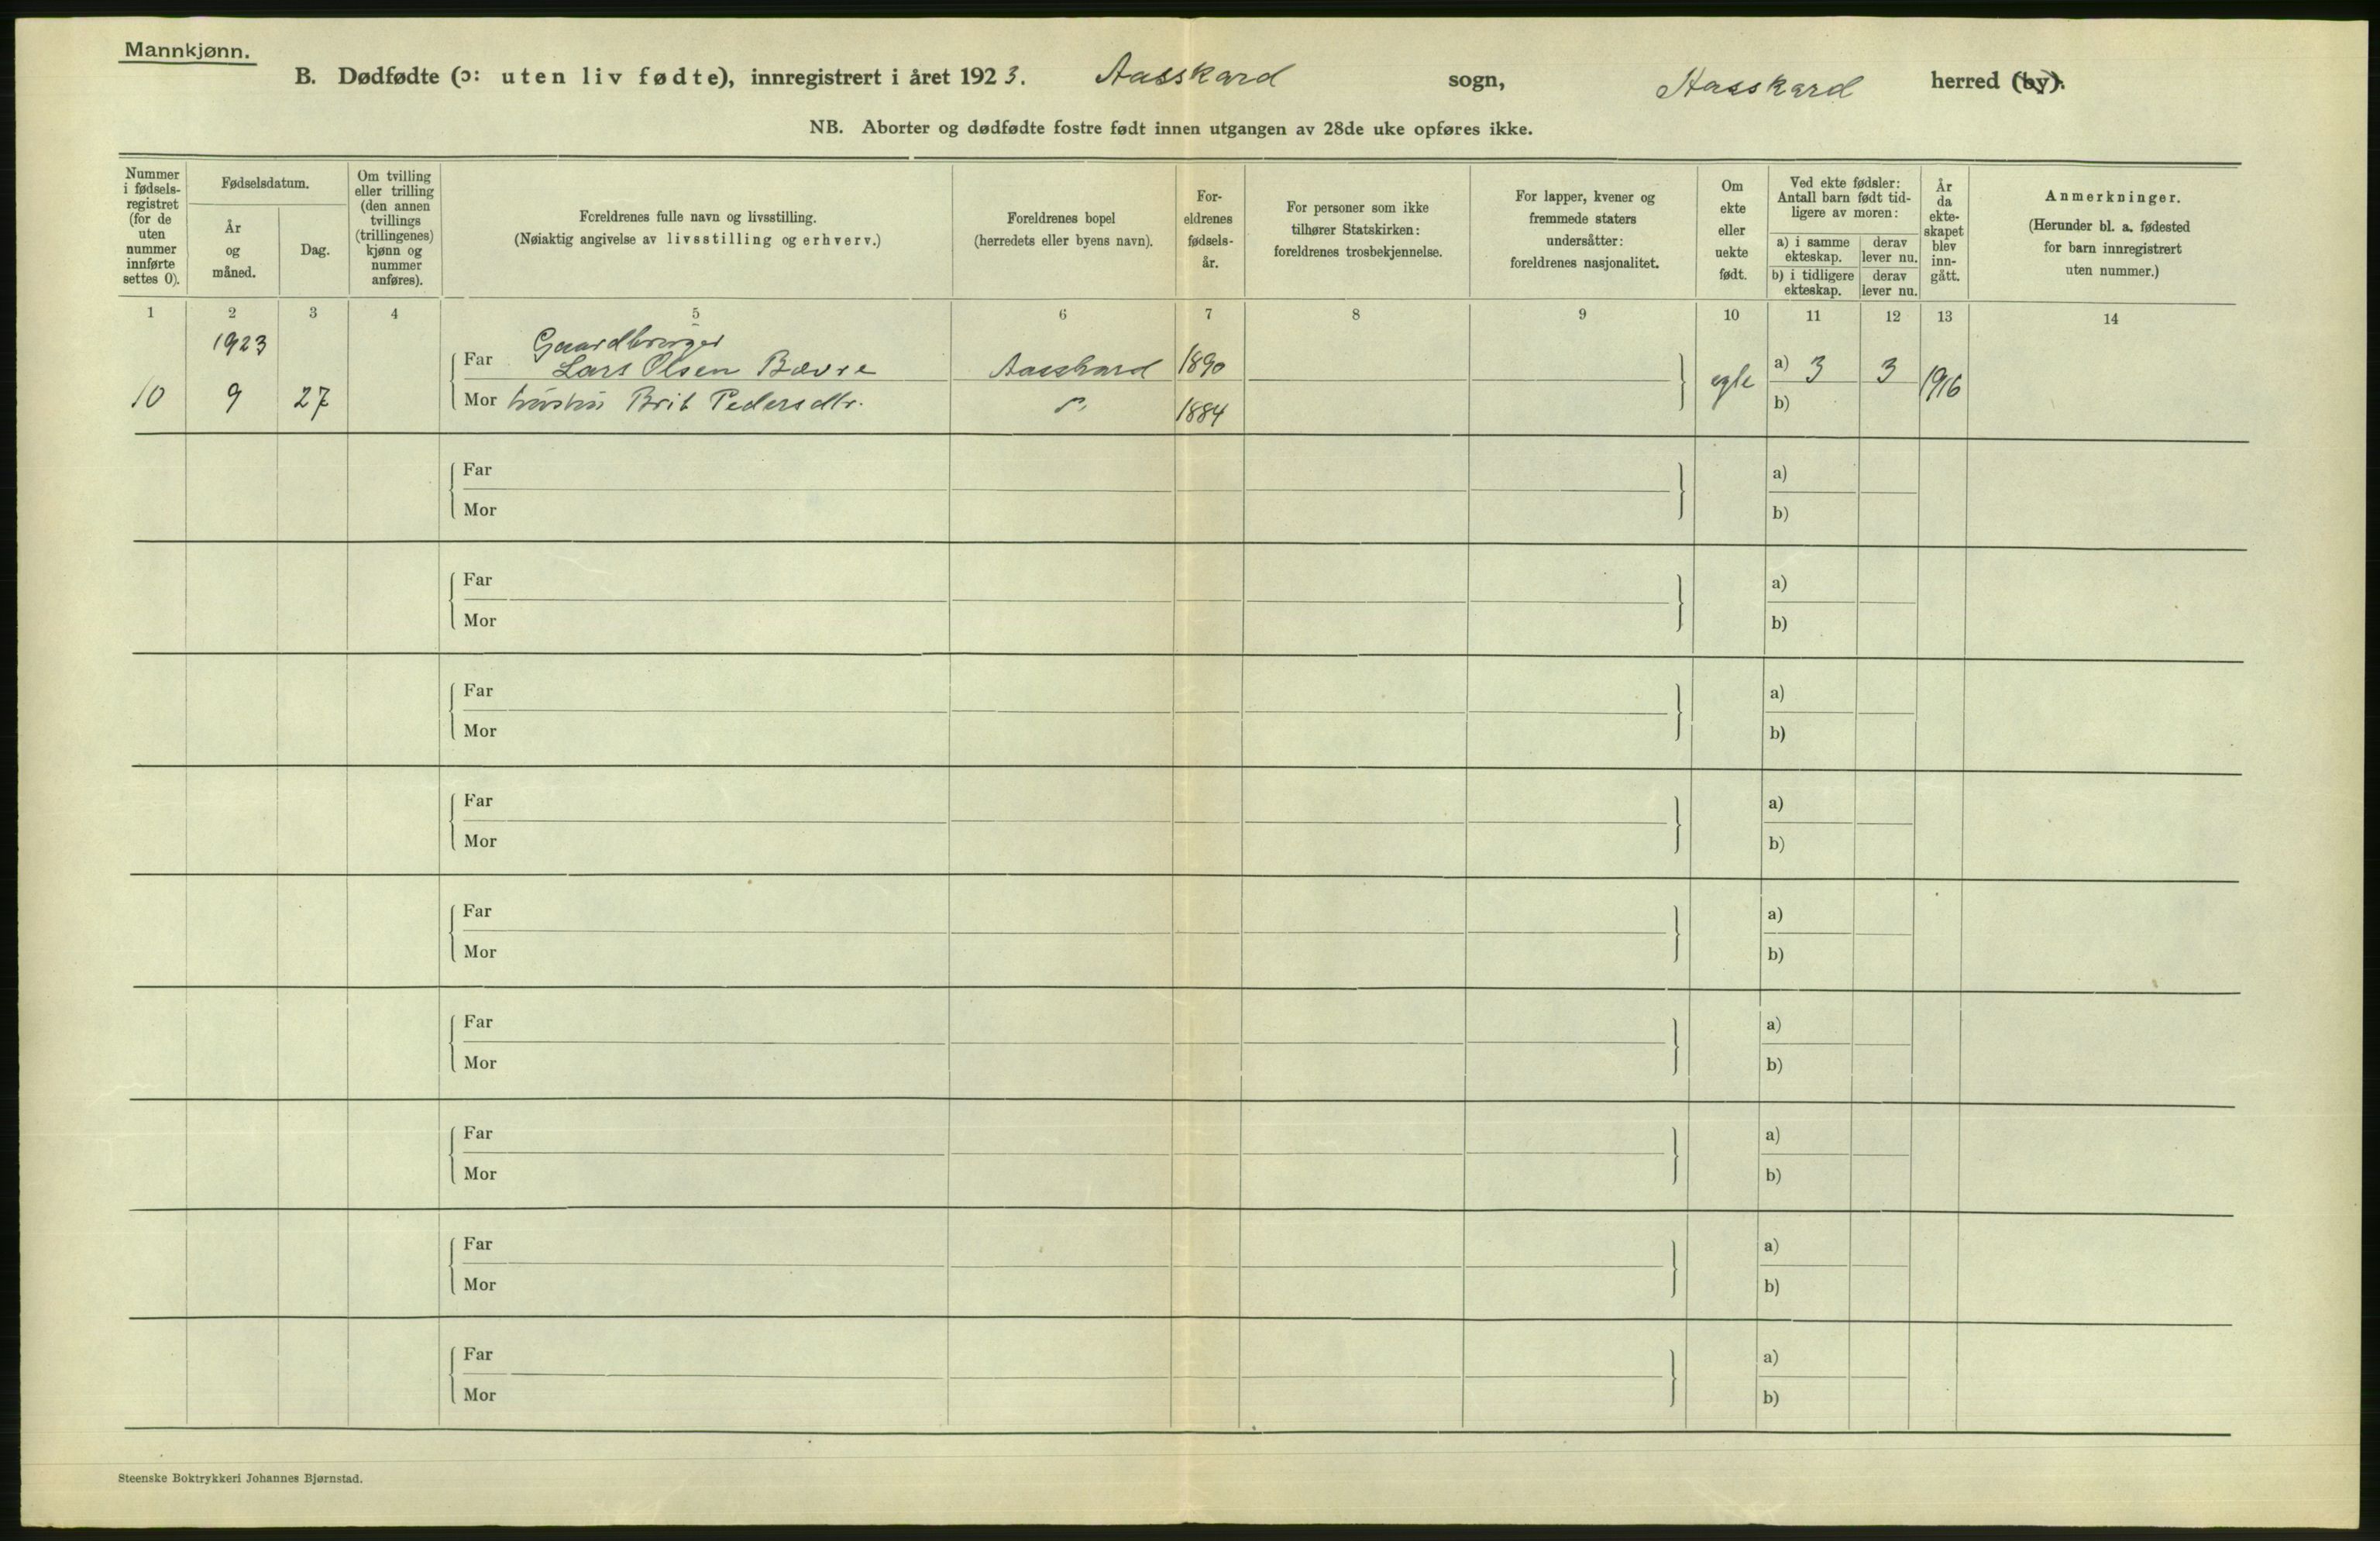 Mannkjønn.
B. Dødfødte (ɔ: uten liv fødte), innregistrert i året 1923. Aasskard sogn, Aasskard herred (by).
NB. Aborter og dødfødte fostre født innen utgangen av 28de uke opføres ikke.
Nummer i fødsels-registret (for de uten nummer innførte settes 0).
Fødselsdatum.
År og måned.
Dag.
Om tvilling eller trilling (den annen tvillings (trillingenes) kjønn og nummer anføres).
Foreldrenes fulle navn og livsstilling.
(Nøiaktig angivelse av livsstilling og erhverv.)
Foreldrenes bopel
(herredets eller byens navn).
For-eldrenes fødsels-år.
For personer som ikke tilhører Statskirken: foreldrenes trosbekjennelse.
For lapper, kvener og fremmede staters undersåtter: foreldrenes nasjonalitet.
Om ekte eller uekte født.
Ved ekte fødsler: Antall barn født tid-ligere av moren:
a) i samme ekteskap.
derav lever nu.
b) i tidligere ekteskap.
derav lever nu.
År da ekte-skapet blev inn-gått.
Anmerkninger.
(Herunder bl. a. fødested for barn innregistrert uten nummer.)
1 2 3 4 5 6 7 8 9 10 11 12 13 14
1923
Gaardbruger
Far Lars Olsen Bævre Aasskard 1890 a) 3 3
10 9 27 Mor Brit Pedersdtr. 1884 egte b) 1916
Far a)
Mor b)
Far a)
Mor b)
Far a)
Mor b)
Far a)
Mor b)
Far a)
Mor b)
Far a)
Mor b)
Far a)
Mor b)
Far a)
Mor b)
Far a)
Mor b)
Steenske Boktrykkeri Johannes Bjørnstad.